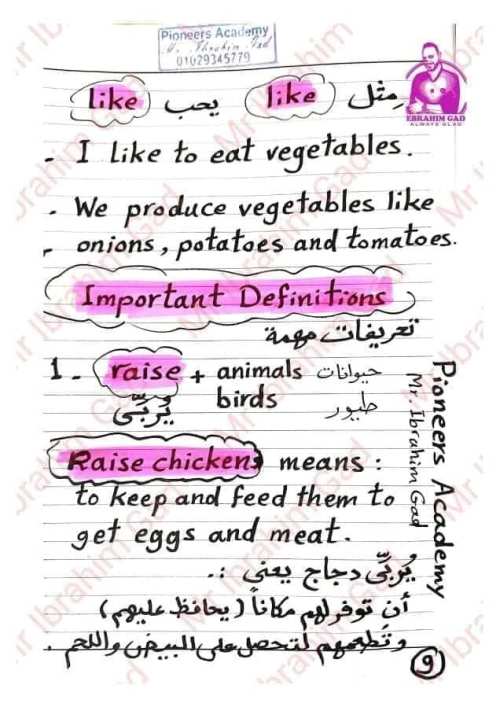 Pioneers Academy
Mr. Ibrahim Gad
01029345779
EBRAHIM GAD
ALWAYS GLAD
like يحب like مِثل
- I like to eat vegetables.
- We produce vegetables like
- onions, potatoes and tomatoes.
Important Definitions
تعريفات مهمة
1 - raise + animals حيوانات
يُربِّى birds طيور
Raise chickens means :
to keep and feed them to
get eggs and meat.
يُربِّى دجاج يعنى :.
أن توفر لهم مكاناً (يحافظ عليهم)
وتُطعمهم لتحصل على البيض واللحم .
9
Pioneers Academy
Mr. Ibrahim Gad